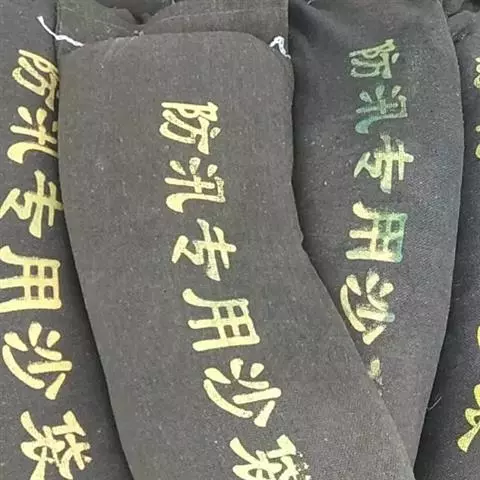 防汛专用沙袋
防汛专用沙袋
防汛专用沙